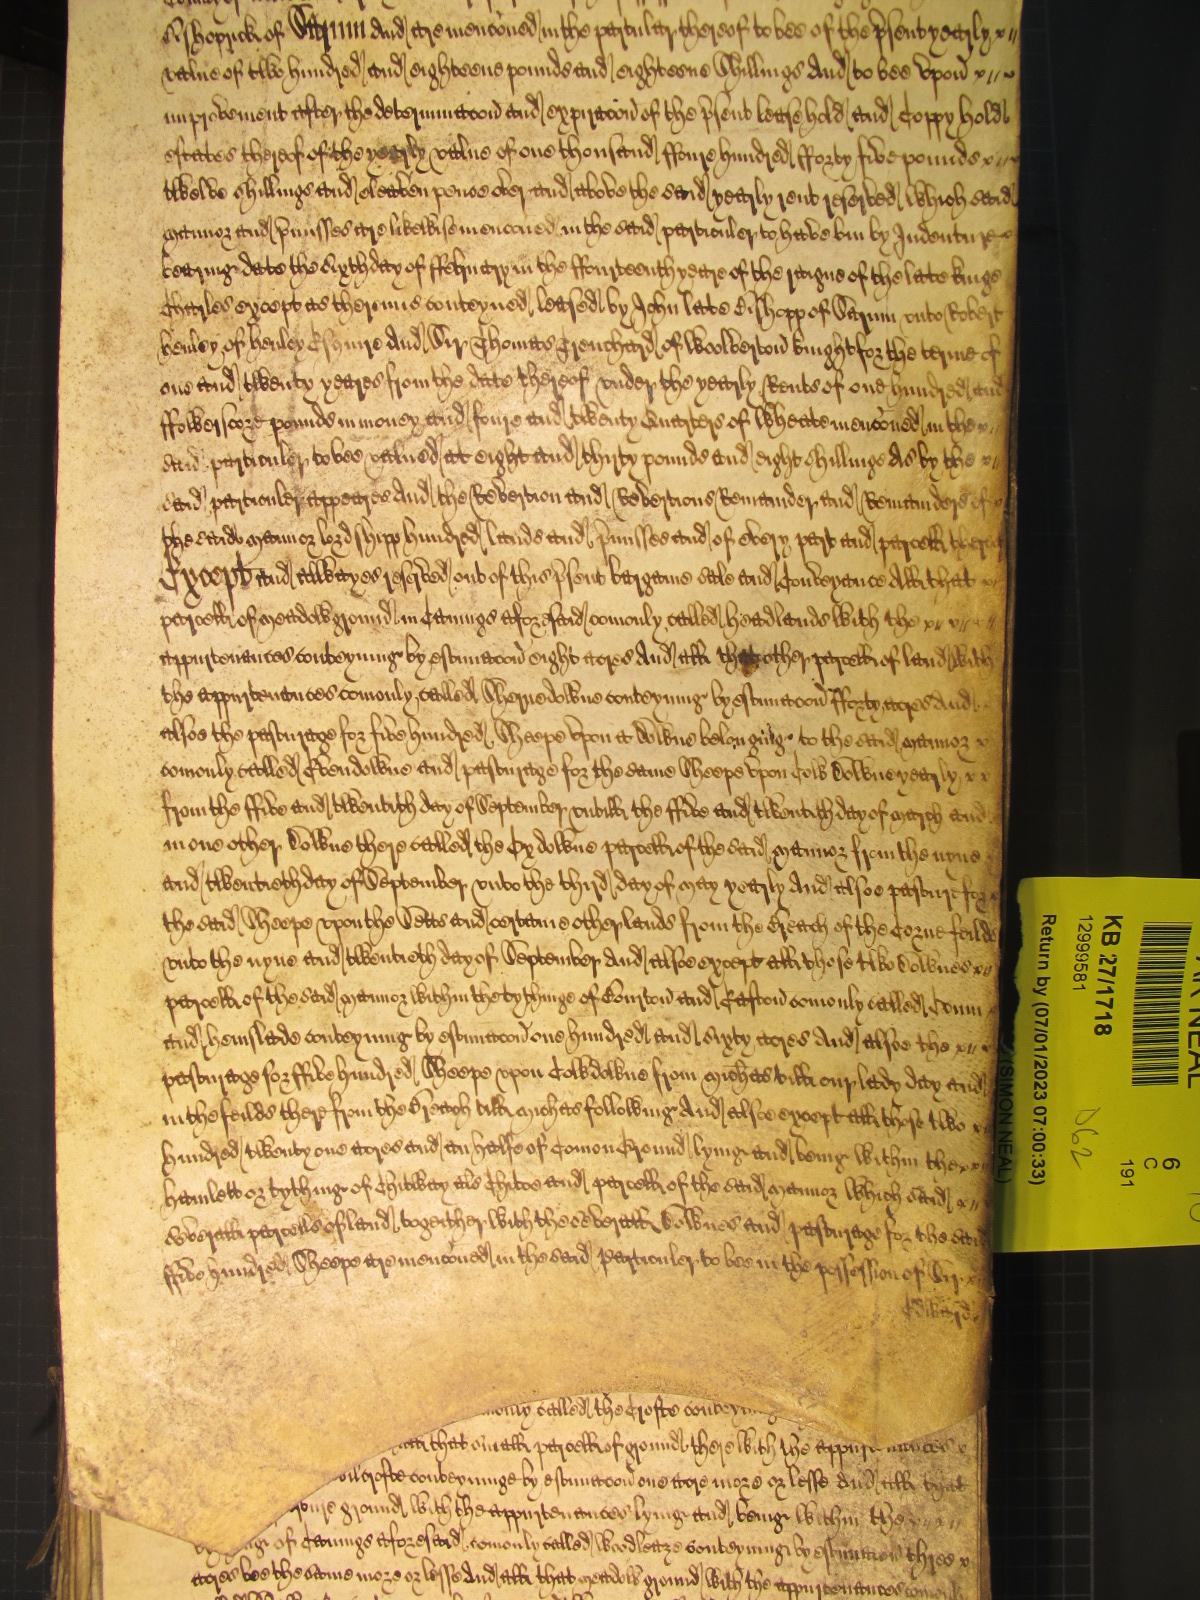 Bishoprick of Sarum And are menc̃oned in the particular thereof to bee of the p̃sent yearly
value of two hundred and eighteene pounds and eighteene shillings And to bee vpon
improvement after the determinac̃on and expirac̃on of the p̃sent leasehold and Coppy hold
estates thereof of the yearly value of one thousand ffoure hundred fforty five pounds
twelve shillings and eleaven pence over and above the said yearly rent reserved Which said
mannor and p̃misses are likewise menc̃oned in the said particuler to have bin by Indenture
bearing date the sixth day of ffebruary in the ffourteenth yeare of the raigne of the late kinge
Charles except as therein is conteyned leased by John late Bishopp of Sarum vnto Robert
henley of henley Esquire And Sir Thomas Trenchard of Woolverton knight for the terme of
one and twenty yeares from the date thereof vnder the yearly Rents of one hundred and
ffowerscore pounds in money and foure and twenty Quarters of Wheate menc̃oned in the
said particuler to bee valued at eight and thirty pounds and eight shillings As by the
said particuler appeares And the Reversion and Reversions Remainder and Remainders of
the said mannor lordshipp hundred lands and p̃misses and of every part and parcell thereof
Except and allwayes reserved out of this p̃sent bargaine sale and Conveyance All that
parcell of meadow ground in Cannings aforesaid com̃only called headlands with the
appurtenances conteyning by estimac̃on eight acres And all that other parcell of land with
the appurtenances com̃only called Shernedowne conteyning by estimac̃on fforty acres And
alsoe the pasturage for five hundred Sheepe vpon a Downe belonging to the said mannor
com̃only called Evendowne and pasturage for the same Sheepe vpon Cow Downe yearly
from the ffive and twentith day of September vntill the ffive and twentith day of march and
in one other Downe there called the Ox downe parcell of the said mannor from the nyne
and twentieth day of September vnto the third day of may yearly And alsoe pasture for
the said Sheepe vpon the Leas and certaine other lands from the Breach of the Corne feilds
vnto the nyne and twentieth day of September And alsoe except all those two Downes
parcell of the said mannor within the tythinge of Bourton and Easton com̃only called
and heinslade conteyning by estimac̃on one hundred and sixty acres And alsoe the
pasturage for ffive hundred Sheepe vpon Cowdowne from michas till our lady day and
in the feilds there from the Breach till michas following And alsoe except all those two
hundred twenty one acres and an halfe of Com̃on Ground lying and being within the
hamlett or tything of Chitway als Chitoe and parcell of the said mannor Which said
severall parcells of land togeither with the severall Downes and pasturage for the said
ffive hundred Sheepe are menc̃oned in the said Particuler to bee in the possession of Sir
Edward
called the Crofte conteyning
all that small parcell of ground there with the appurtenances
crofte conteyninge by estimac̃on one acre more or lesse And all that
ground with the appurtenances lying and being within the
of Cannings aforesaid com̃only called Woodleaze conteyning by estimac̃on three
acres bee the same more or lesse And all that meadow ground with the appurtenances com̃only
KB 27/1718
12999581
Return by (07/01/2023 07:00:33)
(SIMON NEAL)
062
6
C
191